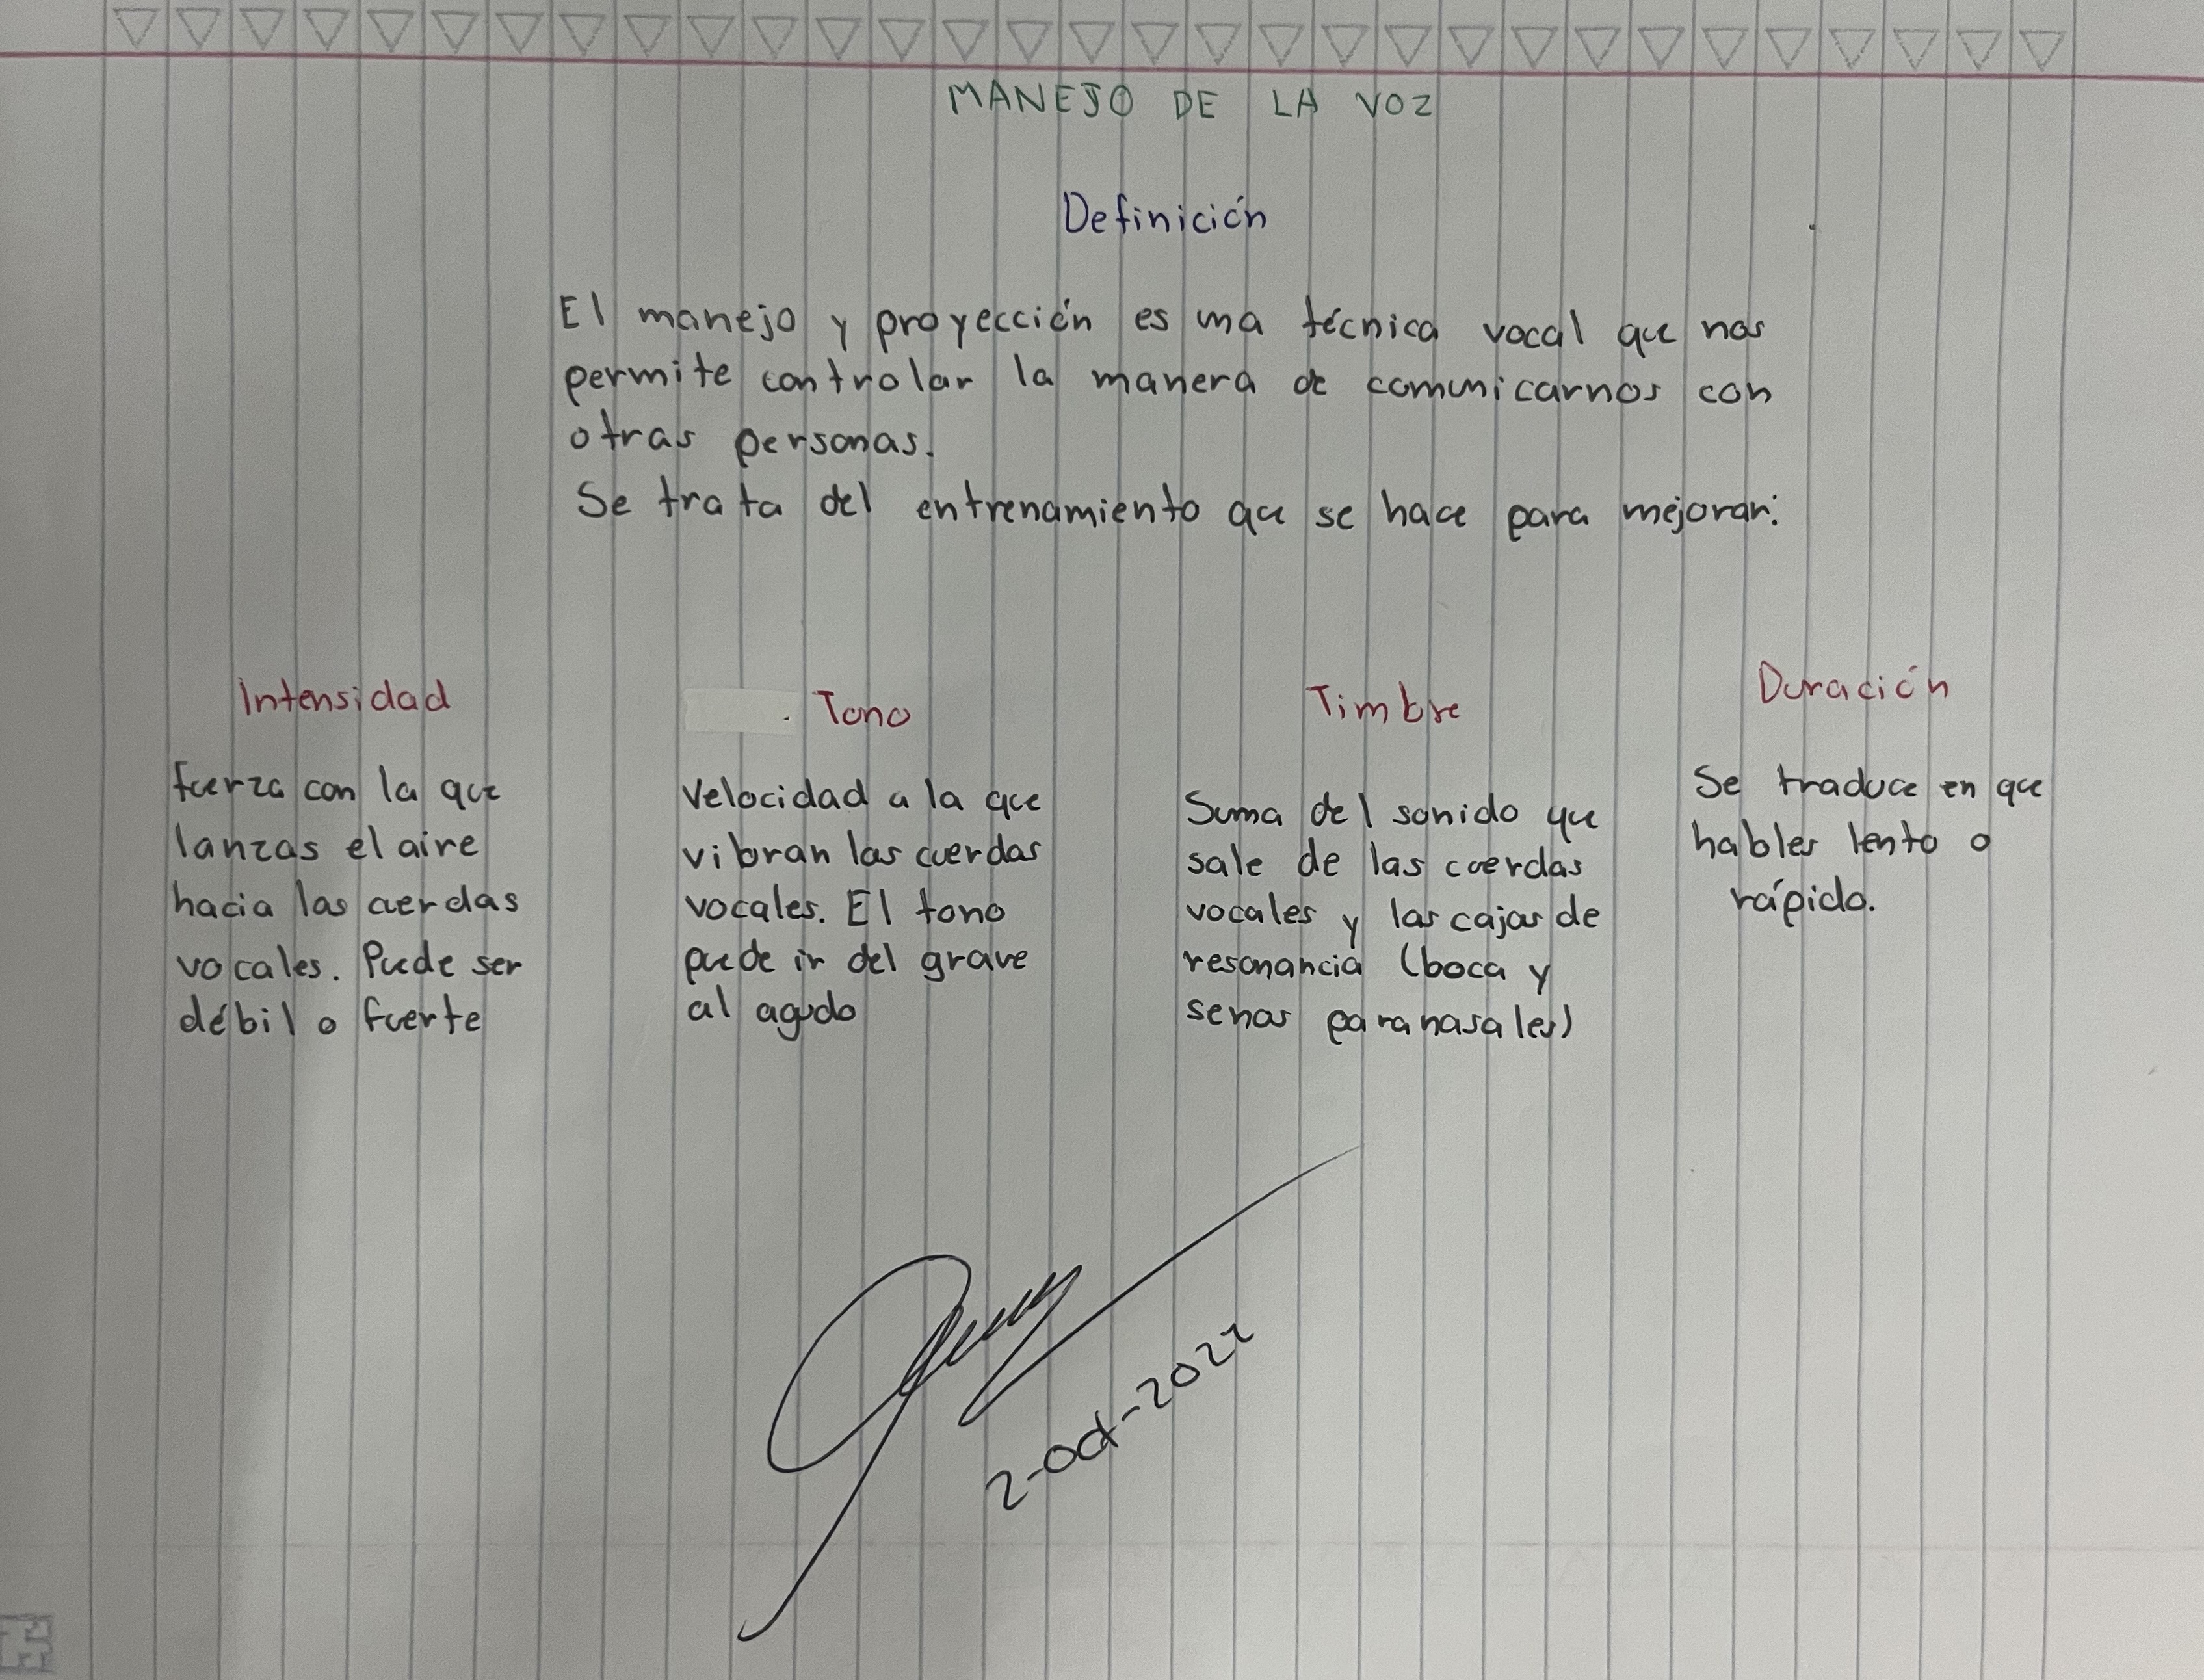 MANEJO DE LA VOZ
Definición
El manejo y proyección es una técnica vocal que nos
permite controlar la manera de comunicarnos con
otras personas.
Se trata del entrenamiento que se hace para mejorar:
Intensidad
fuerza con la que
lanzas el aire
hacia las cuerdas
vocales. Puede ser
débil o fuerte
Tono
Velocidad a la que
vibran las cuerdas
vocales. El tono
puede ir del grave
al agudo
Timbre
Suma del sonido que
sale de las cuerdas
vocales y las cajas de
resonancia (boca y
senos paranasales)
Duración
Se traduce en que
hables lento o
rápido.
2-Oct-2022